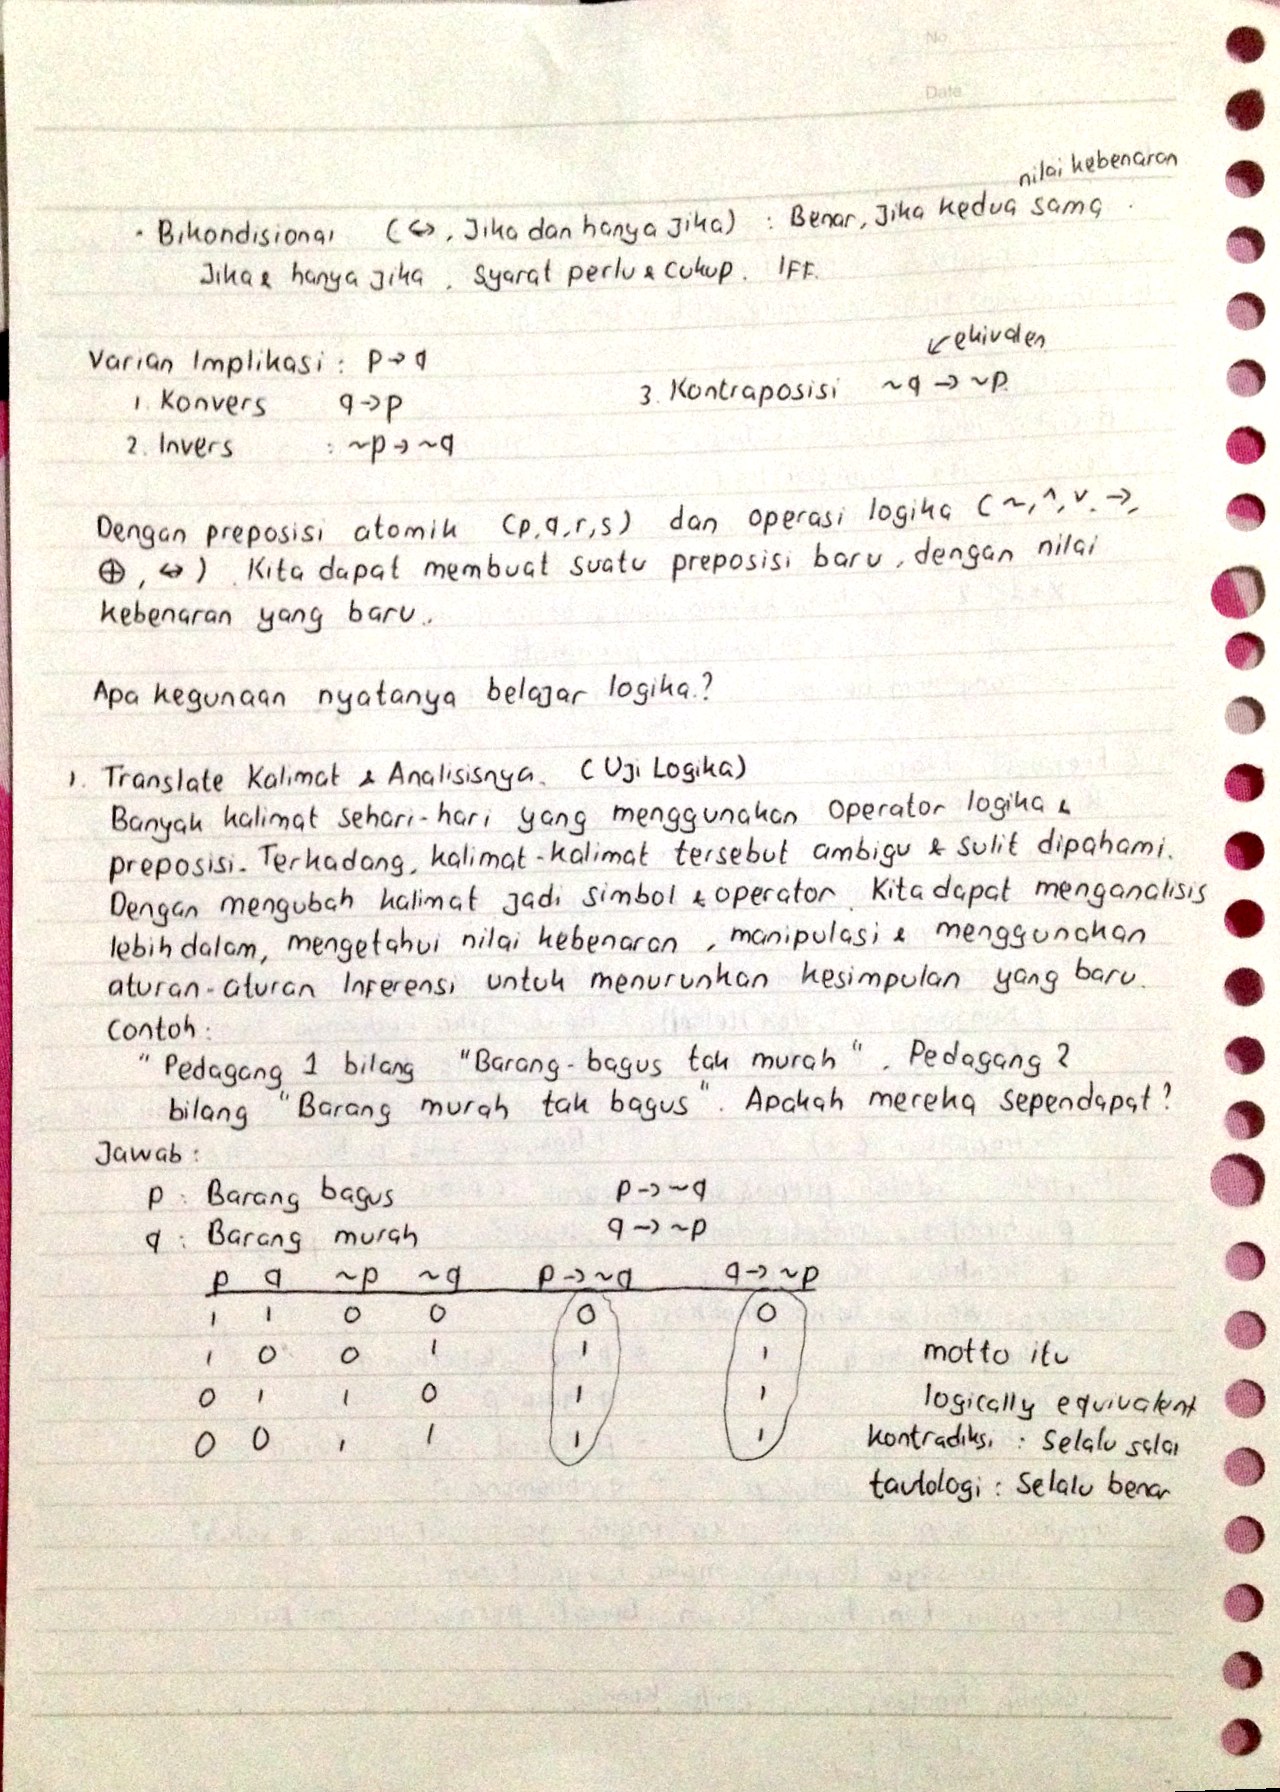 No
Date
nilai kebenaran
· Bikondisional (↔, Jika dan hanya Jika) : Benar, Jika kedua sama.
Jika & hanya jika. Syarat perlu & cukup. IFF.
Varian Implikasi : p→q
↙ ekivalen
1. Konvers q→p
3. Kontraposisi ~q → ~p
2. Invers : ~p → ~q
Dengan preposisi atomik (p,q,r,s) dan operasi logika (~,^,v,→,
⊕, ↔) . Kita dapat membuat suatu preposisi baru, dengan nilai
kebenaran yang baru.
Apa kegunaan nyatanya belajar logika.?
1. Translate Kalimat & Analisisnya. (Uji Logika)
Banyak kalimat sehari-hari yang menggunakan operator logika &
preposisi. Terkadang, kalimat-kalimat tersebut ambigu & sulit dipahami.
Dengan mengubah kalimat jadi simbol & operator. Kita dapat menganalisis
lebih dalam, mengetahui nilai kebenaran, manipulasi & menggunakan
aturan-aturan Inferensi untuk menurunkan kesimpulan yang baru.
Contoh:
"Pedagang 1 bilang "Barang-bagus tak murah". Pedagang 2
bilang "Barang murah tak bagus". Apakah mereka sependapat?
Jawab:
p : Barang bagus p→~q
q : Barang murah q→~p
p q ~p ~q p→~q q→~p
1 1 0 0 0 0
1 0 0 1 1 1 motto itu
0 1 1 0 1 1 logically equivalent
0 0 1 1 1 1 kontradiksi : Selalu salai
tautologi : Selalu benar